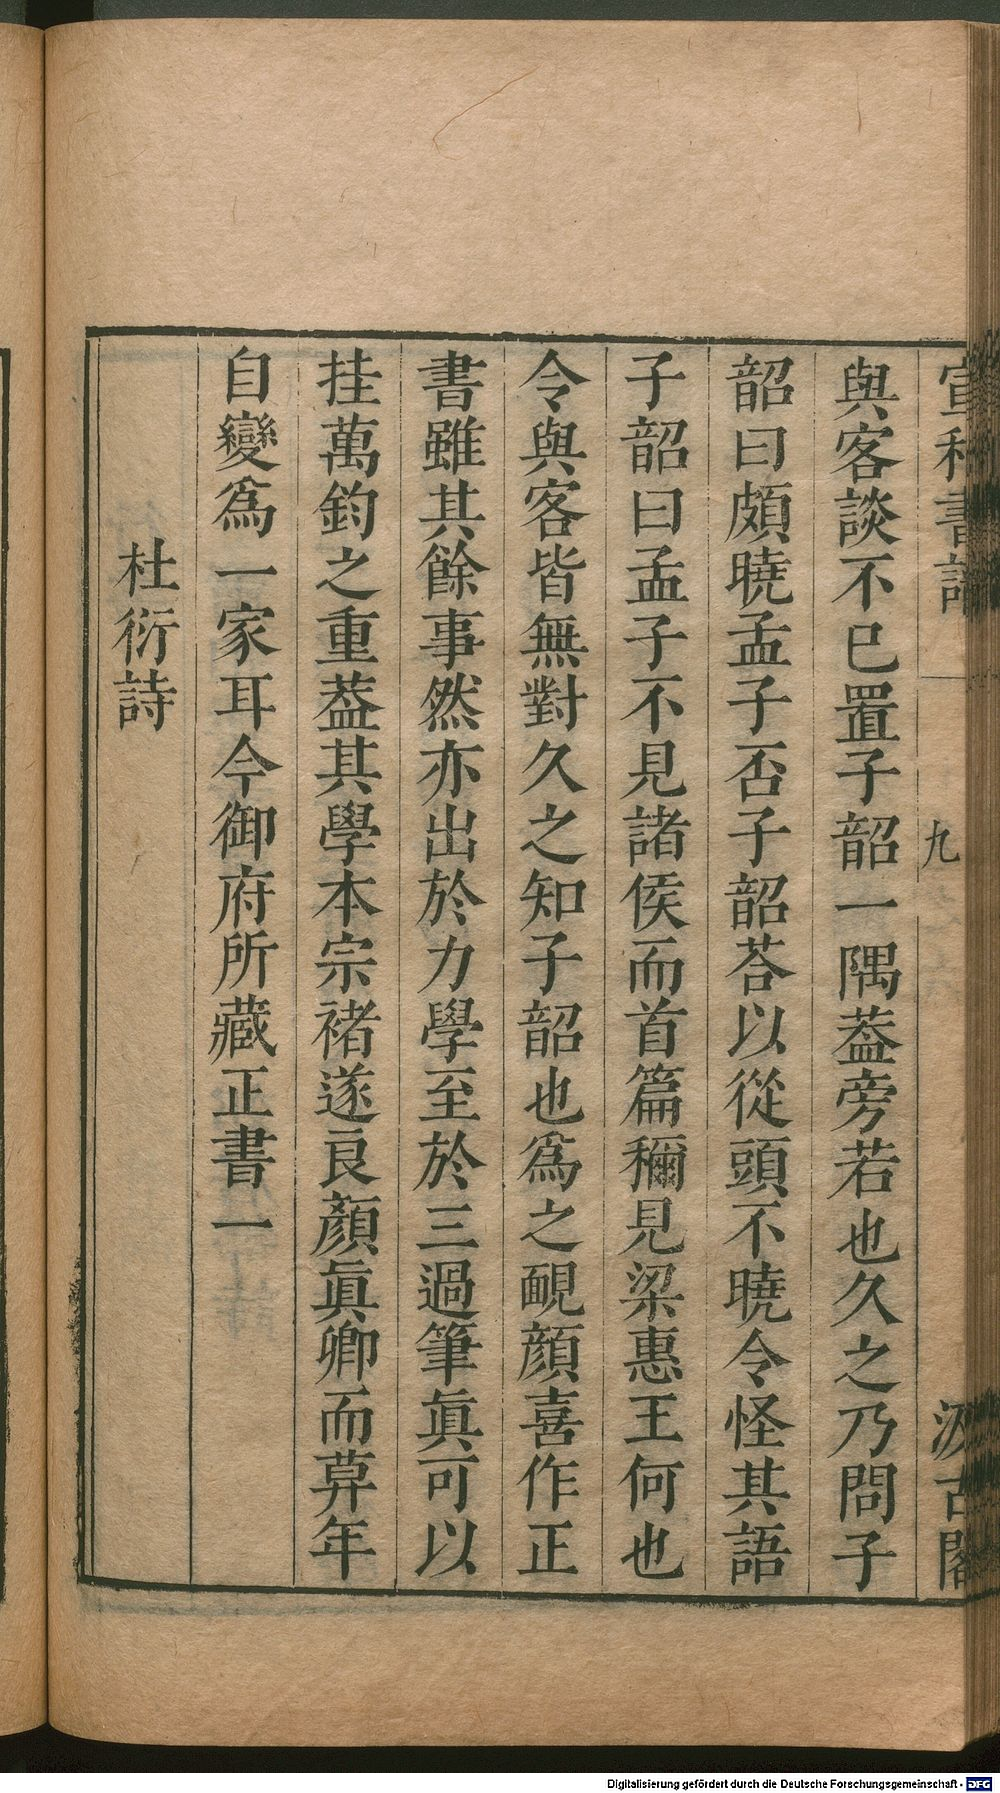 宣和書譜
九
汲古閣
與客談不已置子韶一隅葢旁若也久之乃問子
韶曰頗曉孟子否子韶荅以從頭不曉令怪其語
子韶曰孟子不見諸侯而首篇稱見梁惠王何也
令與客皆無對久之知子韶也爲之靦顔喜作正
書雖其餘事然亦出於力學至於三過筆眞可以
挂萬鈞之重葢其學本宗褚遂良顔眞卿而萛年
自變爲一家耳今御府所藏正書一
杜衍詩
Digitalisierung gefördert durch die Deutsche Forschungsgemeinschaft - DFG